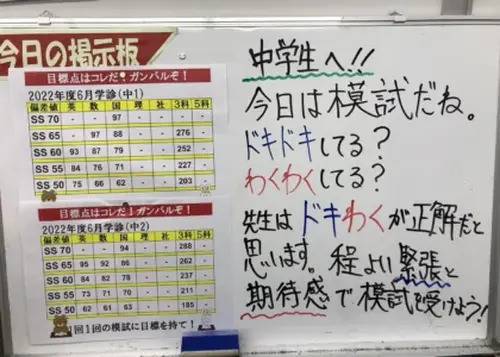 今日の掲示板
目標点はコレだ!ガンバルぞ!
2022年度6月学診(中1)
偏差値 英 数 国 理 社 3科 5科
SS 70 - - 94 - - - -
SS 65 - 97 88 - - 276 -
SS 60 93 87 79 - - 252 -
SS 55 84 76 71 - - 227 -
SS 50 75 66 62 - - 203 -
目標点はコレだ!ガンバルぞ!
2022年度6月学診(中2)
偏差値 英 数 国 理 社 3科 5科
SS 70 - - 94 - - 288 -
SS 65 95 92 86 - - 262 -
SS 60 84 82 78 - - 237 -
SS 55 73 71 70 - - 211 -
SS 50 62 61 63 - - 185 -
1回1回の模試に目標を持て!
中学生へ!!
今日は模試だね。
ドキドキしてる?
わくわくしてる?
先生はドキわくが正解だと
思います。程よい緊張と
期待感で模試を受けよう!